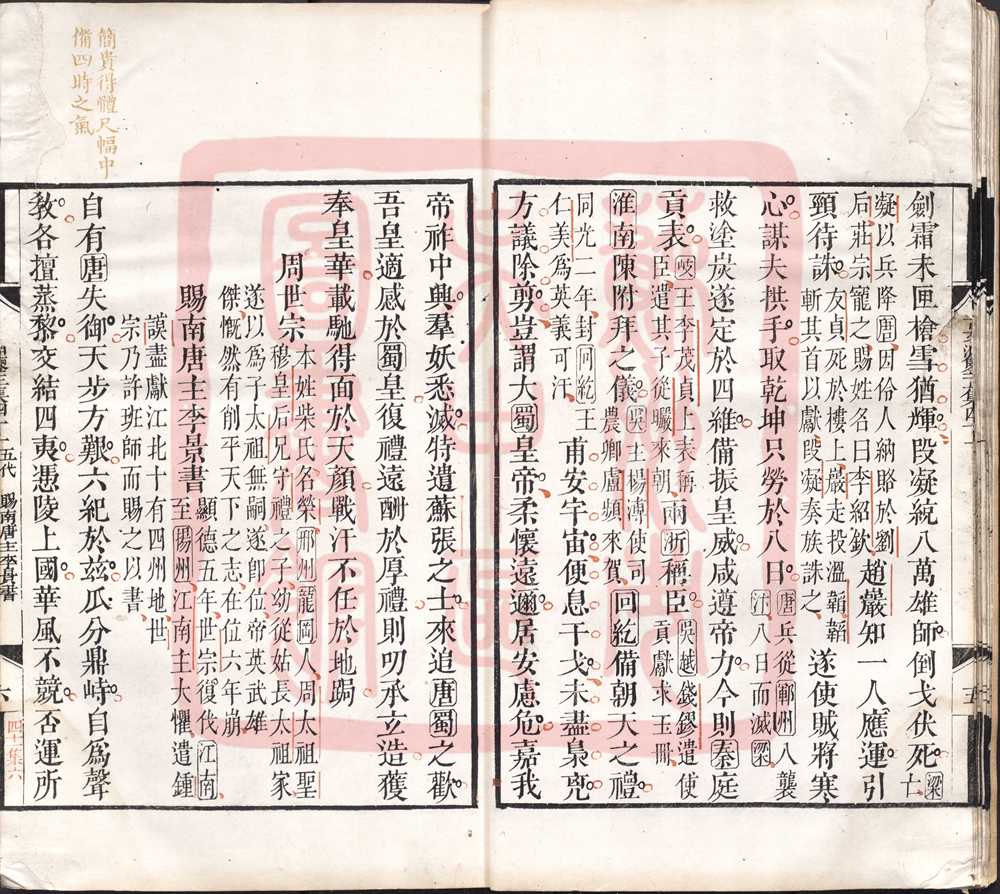 劍霜未匣槍雪猶輝段凝統八萬雄師倒戈伏死梁亡
凝以兵降唐因伶人納賂於劉
后莊宗寵之賜姓名曰李紹欽
趙巖知一人應運引
頸待誅
友貞死於樓上巖走投溫韜韜
斬其首以獻段凝奏族誅之
遂使賊將寒
心謀夫拱手取乾坤只勞於八日
唐兵從鄆州入襲
汴八日而滅梁
救塗炭遂定於四維備振皇威咸遵帝力今則秦庭
貢表
岐王李茂貞上表稱
臣遣其子從曮來朝
兩浙稱臣
吳越錢鏐遣使
貢獻求玉冊
淮南陳附拜之儀
吳主楊溥使司
農卿盧蘋來賀
回紇備朝天之禮
同光二年封回紇王
仁美爲英義可汗
甫安宇宙便息干戈未盡梟兇
方議除剪豈謂大蜀皇帝柔懷遠邇居安慮危嘉我
帝祚中興羣妖悉滅特遣蘇張之士來追唐蜀之歡
吾皇適感於蜀皇復禮遠酬於厚禮則叨承立造獲
奉皇華載馳得面於天顏戰汗不任於地跼
周世宗
本姓柴氏名榮邢州龍岡人周太祖聖
穆皇后兄守禮之子幼從姑長太祖家
遂以爲子太祖無嗣遂即位帝英武雄
傑慨然有削平天下之志在位六年崩
賜南唐主李景書
顯德五年世宗復伐江南
至揚州江南主大懼遣鍾
謨盡獻江北十有四州地世
宗乃許班師而賜之以書
自有唐失御天步方艱六紀於茲瓜分鼎峙自爲聲
教各擅蒸黎交結四夷憑陵上國華風不競否運所
簡貴得體尺幅中
備四時之氣
五代 賜南唐主李景書
六
五